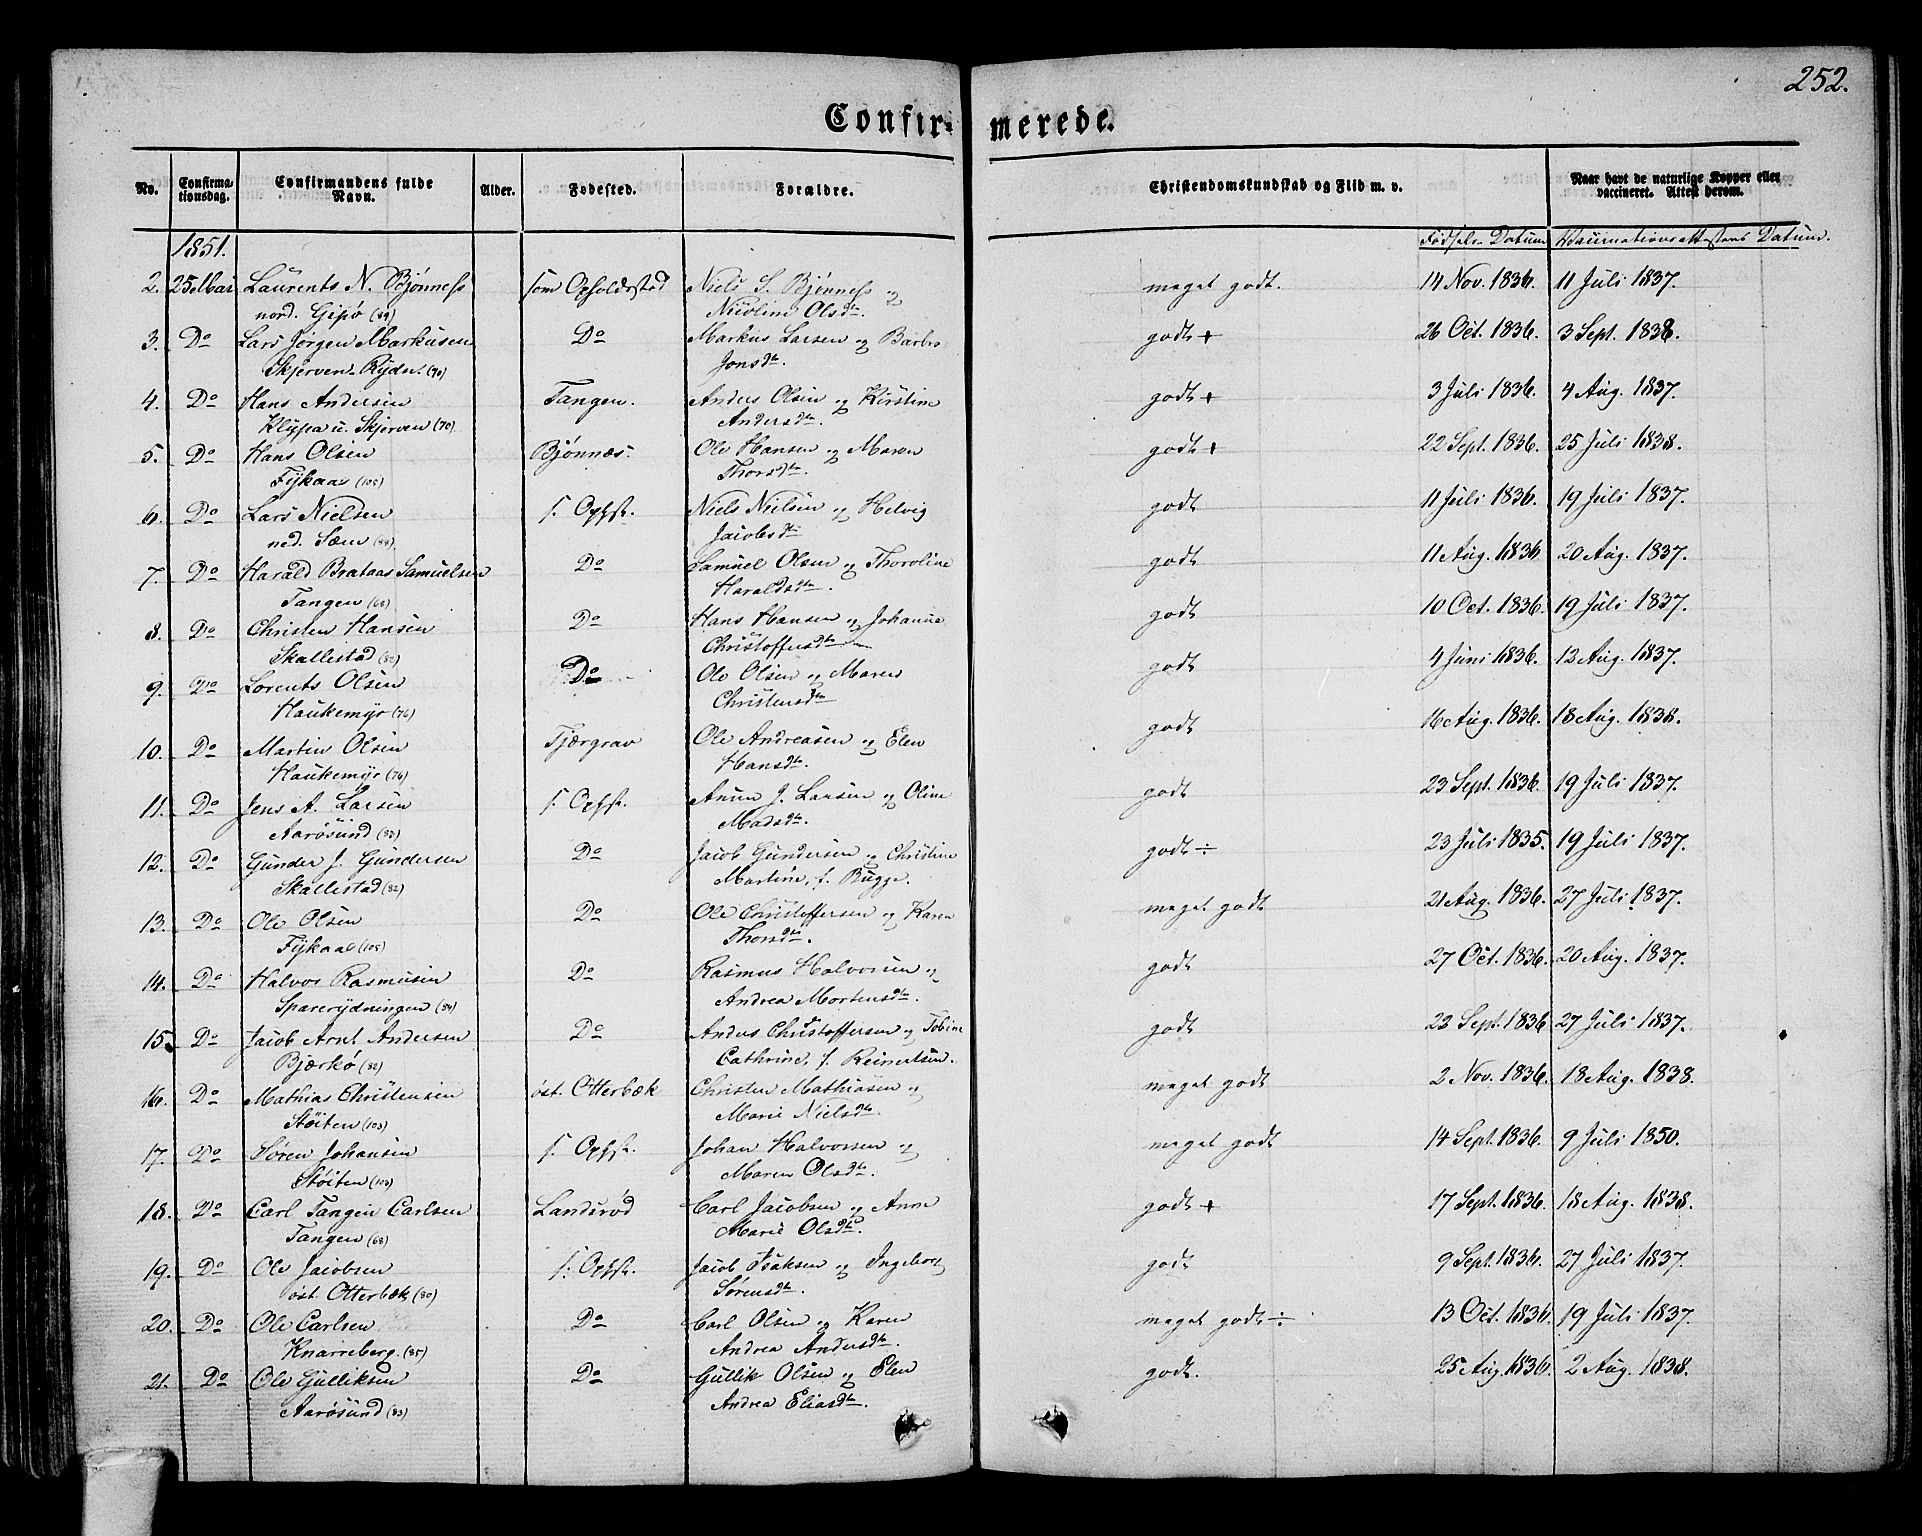 252.
Confir- merede.
No. Confirma-tionsdag. Confirmandens fulde Navn. Alder. Fødested. Forældre. Christendomskundskab og Flid m. v. Naar havt de naturlige Kopper eller vaccineret. Attest herom.
1851. Fødsels-Datum Vaccinationsattestens Datum.
2. 25 Mai Laurents N. Bjønness som Opholdsstad Niels S. Bjønness og meget godt. 14 Nov. 1836. 11 Juli 1837.
nord. Gipø (89) Nicoline Olsdtr.
3. Do Lars Jørgen Markusen Do Markus Larsen og Barbro godt + 26 Oct. 1836. 3 Sept. 1838.
Skjerven-Rydn. (70) Jonsdtr.
4. Do Hans Andersen Tangen. Anders Olsen og Kirstine godt + 3 Juli 1836. 4 Aug. 1837.
Klypa u. Skjerven (70) Andersdtr.
5. Do Hans Olsen Bjønnæs. Ole Hansen og Maren godt + 22 Sept. 1836. 25 Juli 1838.
Fykaas (105) Thorsdtr.
6. Do Lars Nielsen s. Ophst. Niels Nielsen og Helvig godt 11 Juli 1836. 19 Juli 1837.
ned. Sæm (88) Jacobsdtr
7. Do Harald Brataas Samuelsen Do Samuel Olsen og Thoroline godt 11 Aug. 1836 20 Aug. 1837.
Tangen (68) Haraldsdtr.
8. Do Christen Hansen Do Hans Hansen og Johanne godt 10 Oct. 1836. 19 Juli 1837.
Skallestad (82) Christoffersdtr
9. Do Lorents Olsen Do Ole Olsen og Maren godt 4 Juni 1836. 12 Aug. 1837.
Haukemyr (76) Christensdtr
10. Do Martin Olsen Tjærgrav Ole Andreasen og Elen godt 16 Aug. 1836. 18 Aug. 1838.
Haukemyr (76) Hansdtr.
11. Do Jens A. Larsen s. Ophst. J. Larsen og Oline godt 23 Sept. 1836. 19 Juli 1837.
Aarøsund (83) Madsdtr.
12. Do Gunder J. Gundersen Do Jacob Gundersen og Christine godt ÷ 23 Juli 1835. 19 Juli 1837.
Skallestad (82) Martine, f. Bugge.
13. Do Ole Olsen Do Ole Christoffersen og Karen meget godt 21 Aug. 1836. 27 Juli 1837.
Fykaas (105) Thorsdtr.
14. Do Halvor Rasmusen Do Rasmus Halvorsen og godt 27 Oct. 1836. 20 Aug. 1837.
Sparerydningen (84) Andrea Mortensdtr.
15. Do Jacob Arnt Andersen Do Anders Christoffersen og Tobine godt 23 Sept. 1836 27 Juli 1837.
Bjærkø (82) Cathrine, f. Reinertsen.
16. Do Mathias Christensen øst. Otterbæk Christen Mathiasen og meget godt 2 Nov. 1836. 18 Aug. 1838.
Støiten (103) Marie Nielsdtr.
17. Do Søren Johansen s. Ophst. Johan Halvorsen og meget godt 14 Sept. 1836. 9 Juli 1850.
Støiten (103) Maren Olsdtr.
18. Do Carl Tangen Carlsen Landsrød Carl Jacobsen og Anne godt + 17 Sept. 1836. 18 Aug. 1838.
Tangen (68) Marie Olsdtr.
19. Do Ole Jacobsen s. Ophst. Jacob Isaksen og Ingeborg godt 9 Sept. 1836. 27 Juli 1837.
øst. Otterbæk (80) Sørensdtr.
20. Do Ole Carlsen Do Carl Olsen og Karen meget godt ÷ 13 Oct. 1836. 19 Juli 1837.
Knarreberg. (85) Andrea Andersdtr.
21. Do Ole Gulliksen Do Gullik Olsen og Elen godt. 25 Aug. 1836. 2 Aug. 1838.
Aarøsund (83) Andrea Eliasdtr.